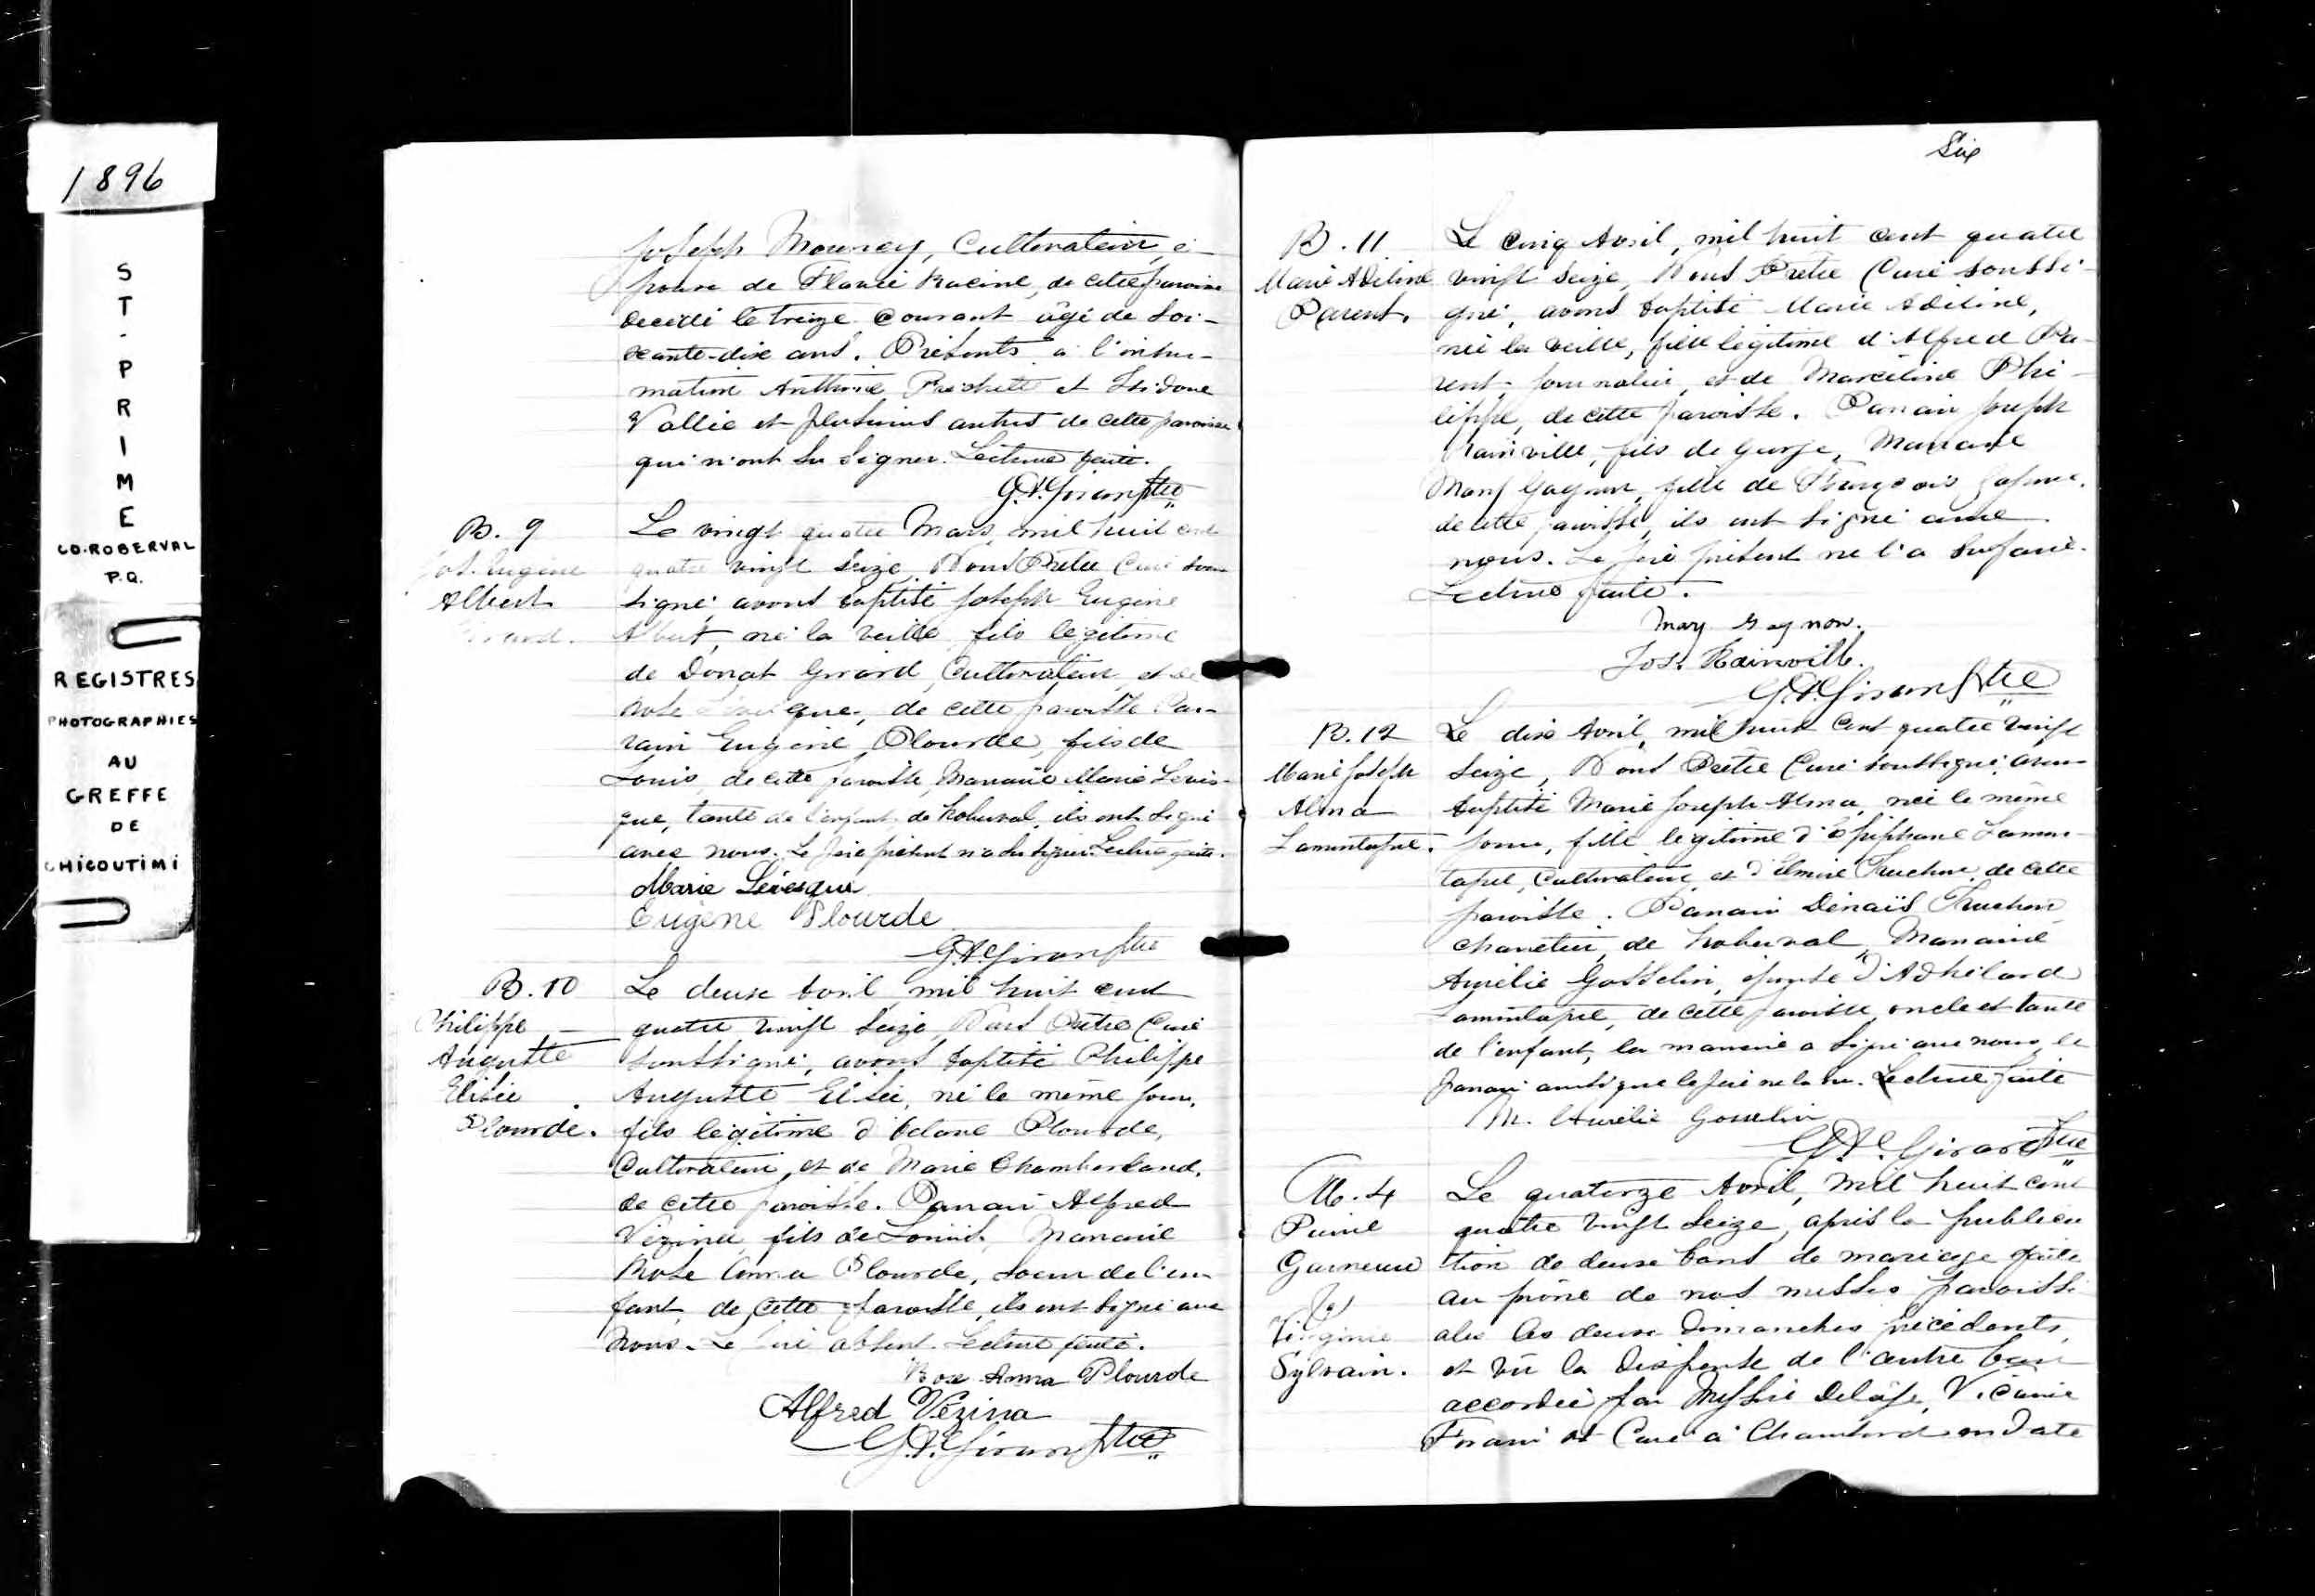 1896
ST-PRIME
CO. ROBERVAL
P.Q.
REGISTRES
PHOTOGRAPHIES
AU
GREFFE
DE
CHICOUTIMI
Joseph Mourey, Cultivateur, é-
poux de Flavie Racine, de cette paroisse
décédé le treize courant âgé de soi-
xante-dix ans. Présents à l'inhu-
mation et Isidore
Vallée et plusieurs autres de cette paroisse
qui n'ont su signer. Lecture faite.
Ptre
B. 9
Jos. Eugène
Albert
Girard.
Le vingt quatre Mars, mil huit cent
quatre vingt seize, Nous Prêtre Curé sous-
signé avons baptisé Joseph Eugène
Albert, né la veille, fils légitime
de Donat Girard, Cultivateur, et de
Rose Lévesque, de cette paroisse. Par-
rain Eugène Plourde, fils de
Louis, de cette paroisse, Marraine Marie Léves-
que, tante de l'enfant, de Roberval, ils ont signé
avec nous. Le père présent n'a su signer. Lecture faite.
Marie Lévesque
Eugène Plourde
Ptre
B. 10
Philippe
Auguste
Elisée
Plourde.
Le deux Avril mil huit cent
quatre vingt seize, Nous Prêtre Curé
soussigné, avons baptisé Philippe
Auguste Elisée, né le même jour,
fils légitime d' Plourde,
Cultivateur, et de Marie Chamberland,
de cette paroisse. Parrain Alfred
Vézina, fils de Louis, Marraine
Rose Anna Plourde, soeur de l'en-
fant, de cette paroisse, ils ont signé avec
nous. Le père absent. Lecture faite.
Rose Anna Plourde
Alfred Vézina
Ptre
Six
B. 11
Marie Adéline
Parent.
Le cinq Avril, mil huit cent quatre
vingt seize, Nous Prêtre Curé soussi-
gné, avons baptisé Marie Adéline,
née la veille, fille légitime d'Alfred Pa-
rent, journalier, et de Marceline Phi-
lippe, de cette paroisse. Parrain Joseph
Rainville, fils de George, Marraine
Mary Gagnon, fille de François Gagnon,
de cette paroisse, ils ont signé avec
nous. Le père présent ne l'a su faire.
Lecture faite.
Mary Gagnon.
Jos. Rainville.
Ptre
B. 12
Marie Joseph
Alma
Lamontagne.
Le dix Avril, mil huit cent quatre vingt
seize, Nous Prêtre Curé soussigné avons
baptisé Marie Joseph Alma, née le même
jour, fille légitime d'Epiphane Lamon-
tagne, Cultivateur, et d'Elmire Truchon, de cette
paroisse. Parrain Truchon,
charretier, de Roberval, Marraine
Aurélie Gosselin, épouse d'Adhélard
Lamontagne, de cette paroisse, oncle et tante
de l'enfant, la marraine a signé avec nous, le
parrain ainsi que le père ne l'a su. Lecture faite
M. Aurélie Gosselin
Girard Ptre
M. 4
Garneau
&
Virginie
Sylvain.
Le quatorze Avril, mil huit cent
quatre vingt seize, après la publica
tion de deux bans de mariage faite
au prône de nos messes paroissi
ales les deux Dimanches précédents,
et vu la dispense de l'autre ban
accordée par Messire Delâge, Vicaire
Forain et Curé à Chambord en date